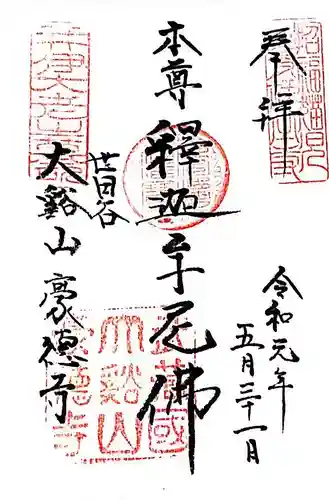 奉拝
令和元年
五月三十一日
本尊
釋迦牟尼佛
世田谷
大谿山豪德寺
武蔵國
大谿山
豪徳寺